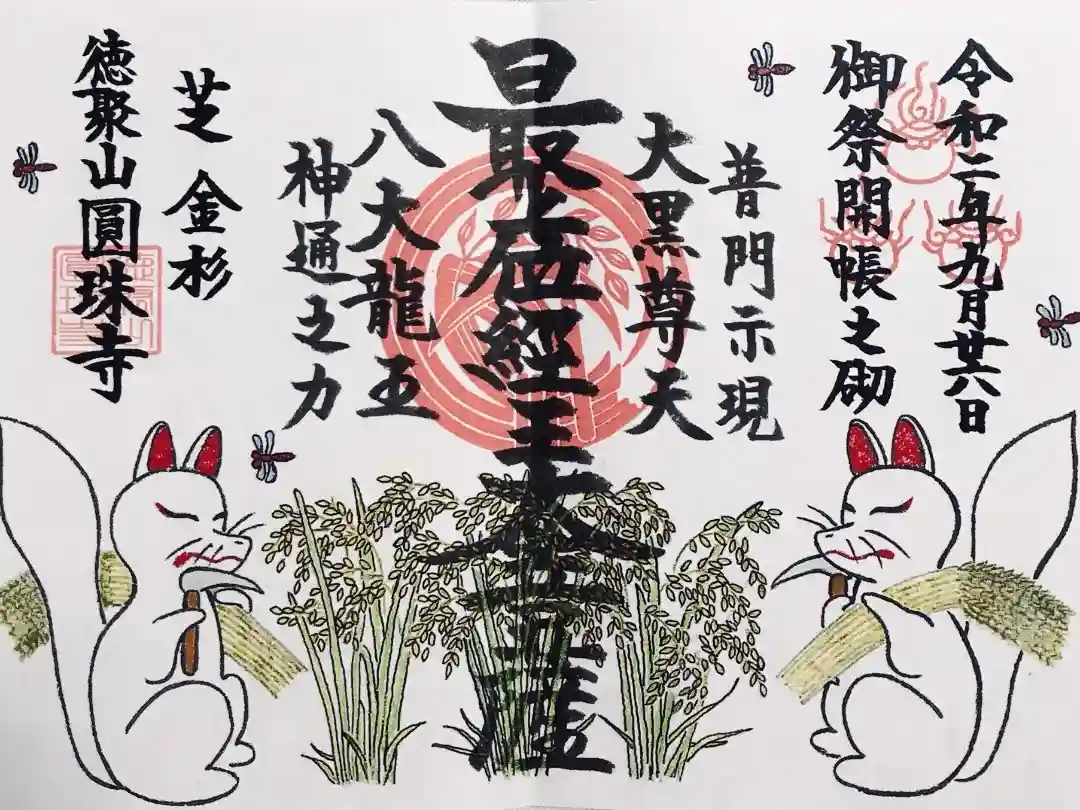 令和二年九月廿六日
御祭開帳之砌
普門示現
大黒尊天
最上位經王大菩薩
八大龍王
神通之力
芝金杉
徳聚山圓珠寺